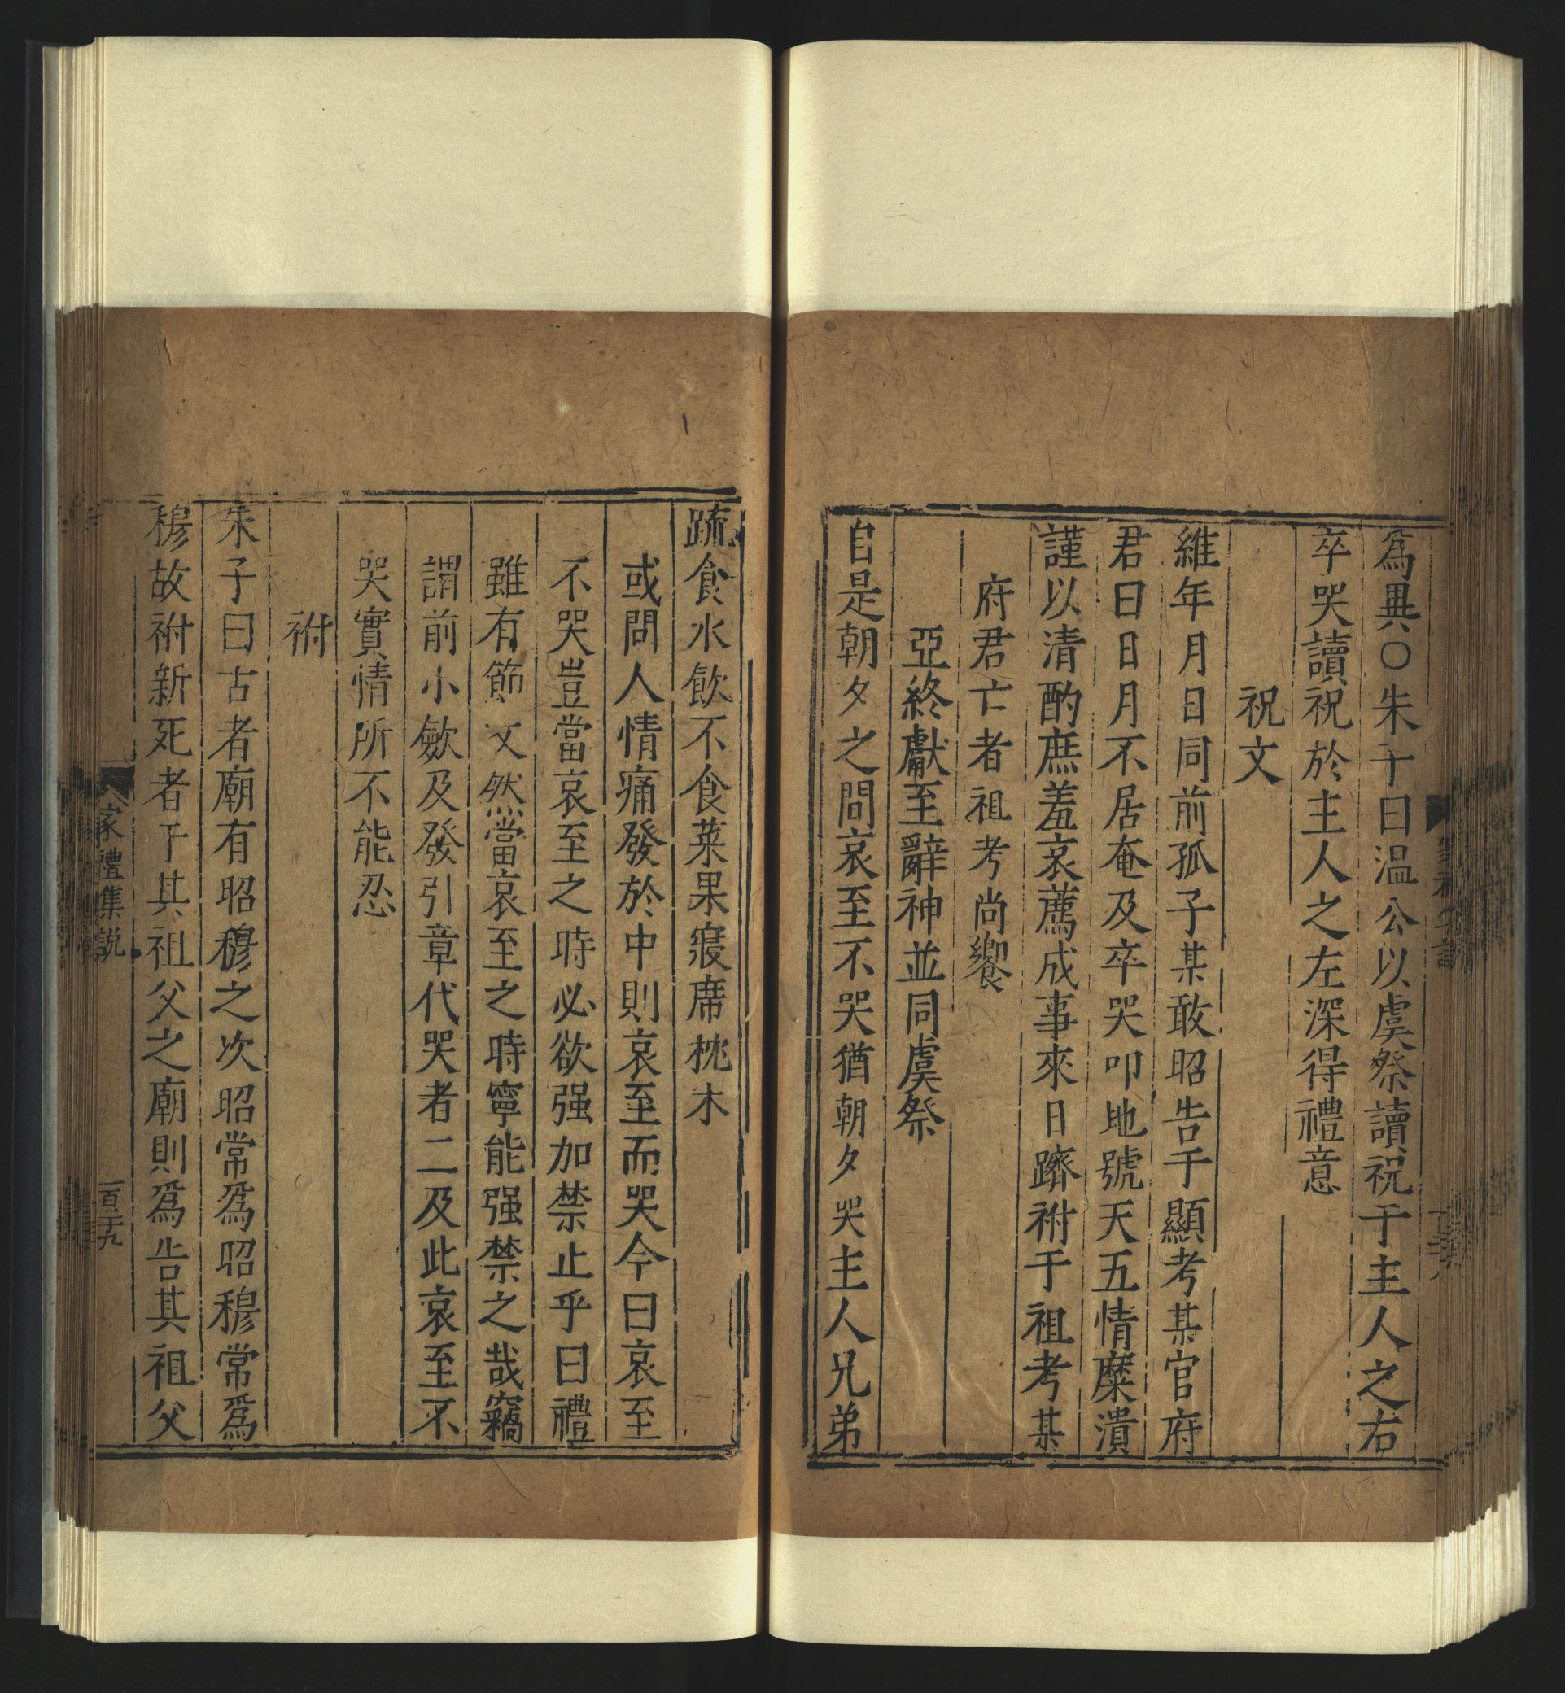 爲異〇朱子曰温公以虞祭讀祝于主人之右
卒哭讀祝於主人之左深得禮意
祝文
維年月日同前孤子某敢昭告于顯考某官府
君曰日月不居奄及卒哭叩地號天五情糜潰
謹以清酌庶羞哀薦成事來日躋祔于祖考某
府君亡者祖考尚饗
亞終獻至辭神並同虞祭
自是朝夕之間哀至不哭猶朝夕哭主人兄弟
疏食水飲不食菜果寢席枕木
或問人情痛發於中則哀至而哭今曰哀至
不哭豈當哀至之時必欲强加禁止乎曰禮
雖有節文然當哀至之時寧能强禁之哉竊
謂前小斂及發引章代哭者二及此哀至不
哭實情所不能忍
祔
朱子曰古者廟有昭穆之次昭常爲昭穆常爲
穆故祔新死者于其祖父之廟則爲告其祖父
家禮集説
一百二十九